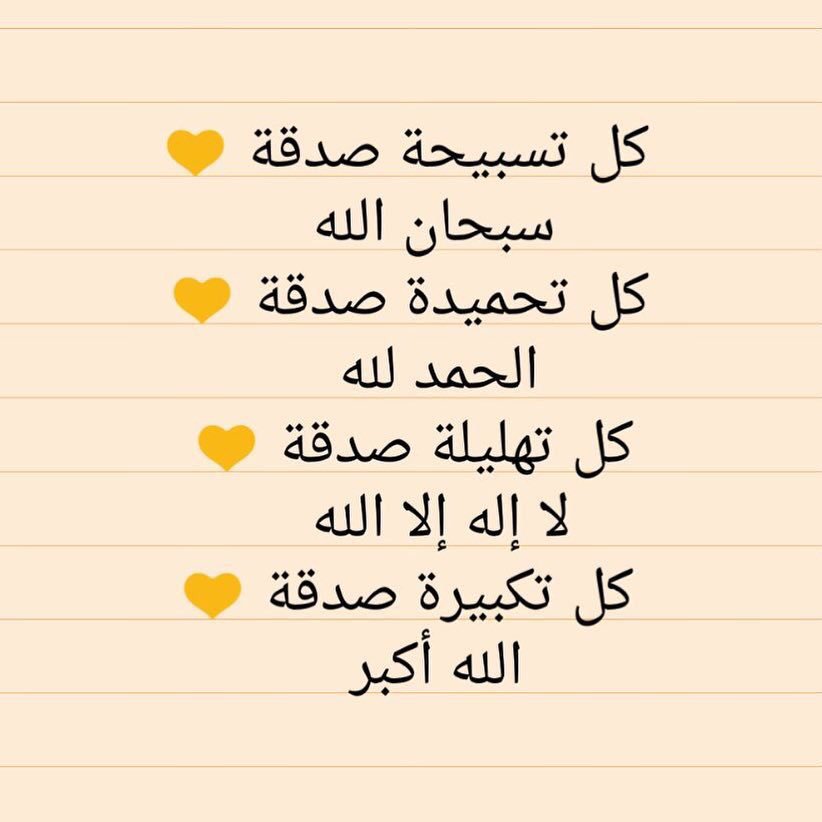 كل تسبيحة صدقة 💛
سبحان الله
كل تحميدة صدقة 💛
الحمد لله
كل تهليلة صدقة 💛
لا إله إلا الله
كل تكبيرة صدقة 💛
الله أكبر